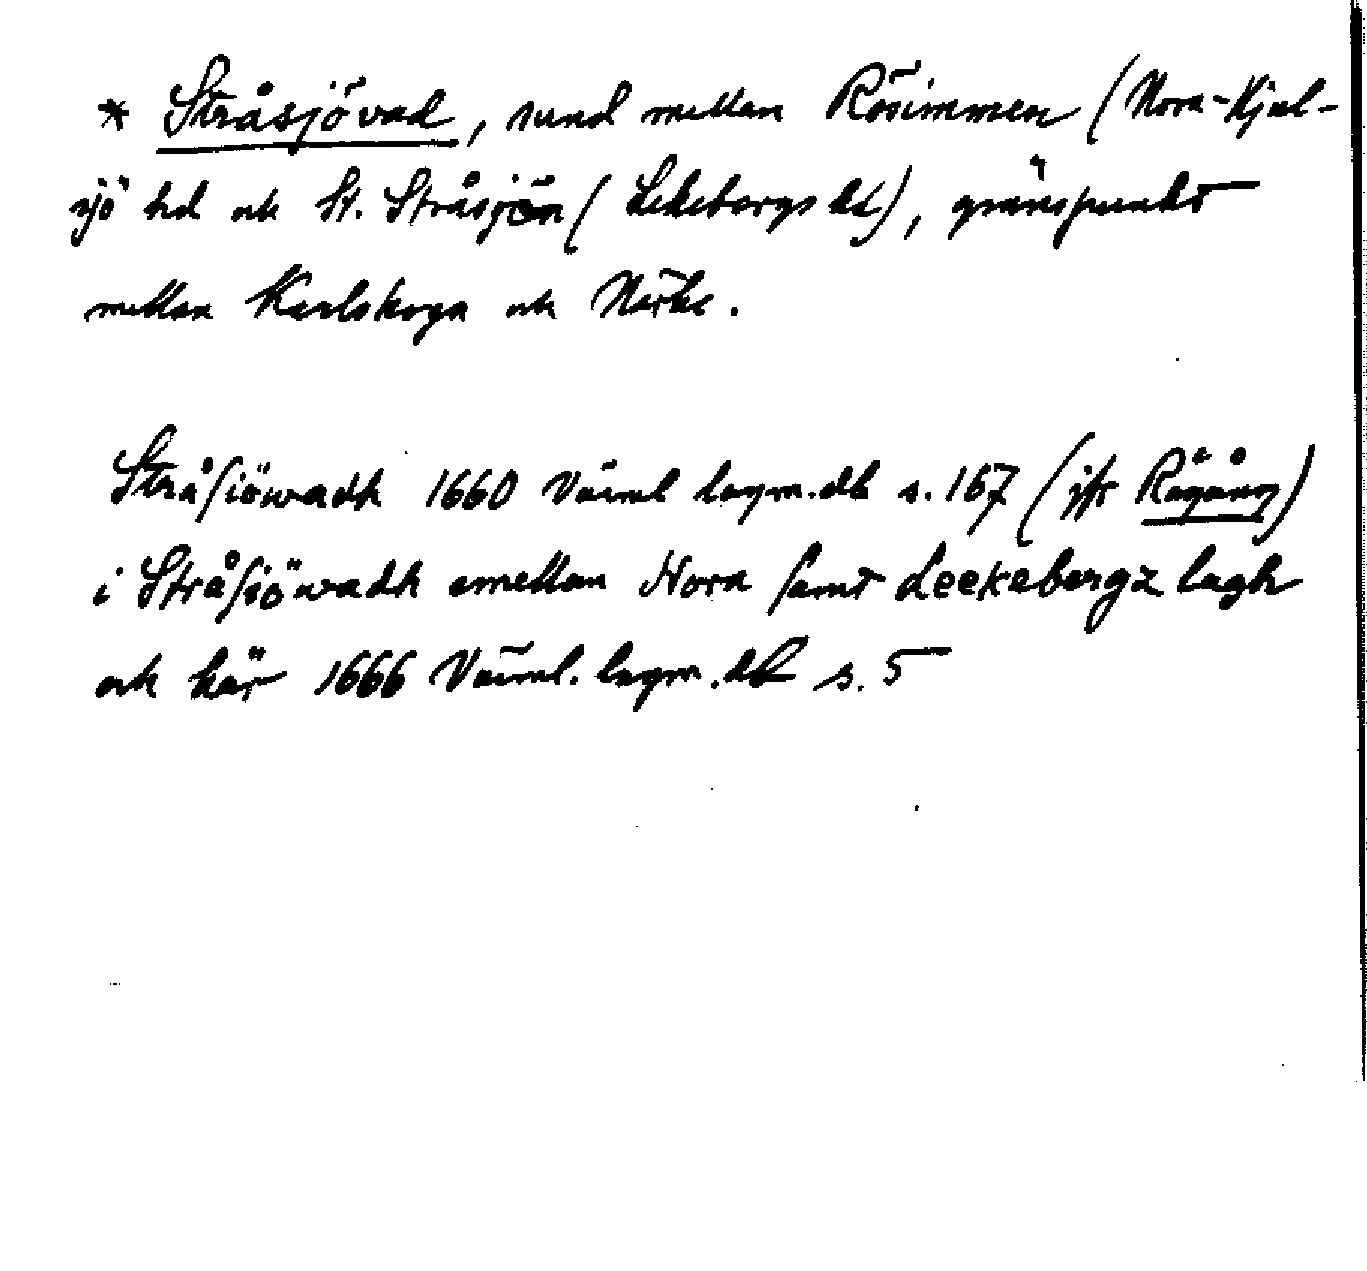 * Stråsjövad, sund mellan Rösimmen (Nora-Hjul-
sjö hd och St. Stråsjön (Lekebergs hd), gränspunkt
mellan Karlskoga och Närke.
Stråſiöwadh 1660 Värml lagm.db s. 167 (jfr Rågång)
i Stråſiöwadh emellan Nora ſamt Leekebergz lagh
och här 1666 Värml. lagm.db s. 5